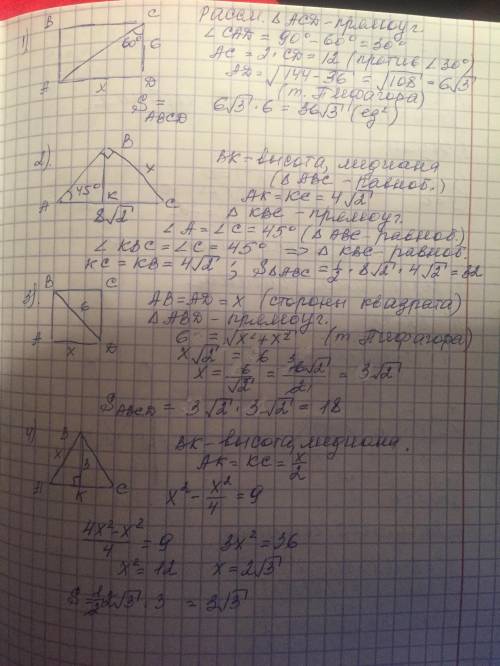 1)
B C
60° 6
A x D
Рассм. △ACD - прямоуг.
∠CAD = 90° - 60° = 30°
AC = 2 · CD = 12 (против ∠30°)
AD = √144 - 36 = √108 = 6√3
(т. Пифагора)
S ABCD = 6√3 · 6 = 36√3 (ед²)
2).
B
x
45°
A K C
8√2
BK - высота, медиана
(△ABC - равноб.)
AK = KC = 4√2
△ KBC - прямоуг.
∠A = ∠C = 45° (△ABC - равноб.)
∠KBC = ∠C = 45° => △KBC - равноб.
KC = KB = 4√2 ; S△ABC = 1/2 · 8√2 · 4√2 = 32
3)
B C
6
A x D
AB = AD = x (стороны квадрата)
△ABD - прямоуг.
6 = √x² + x² (т. Пифагора)
x√2 = 6
x = 6/√2 = 6√2/2 = 3√2
S ABCD = 3√2 · 3√2 = 18
4)
B
x 3
A K C
BK - высота, медиана.
AK = KC = x/2
x² - x²/4 = 9
4x² - x²/4 = 9 3x² = 36
x² = 12 x = 2√3
S = 1/2 2√3 · 3 = 3√3